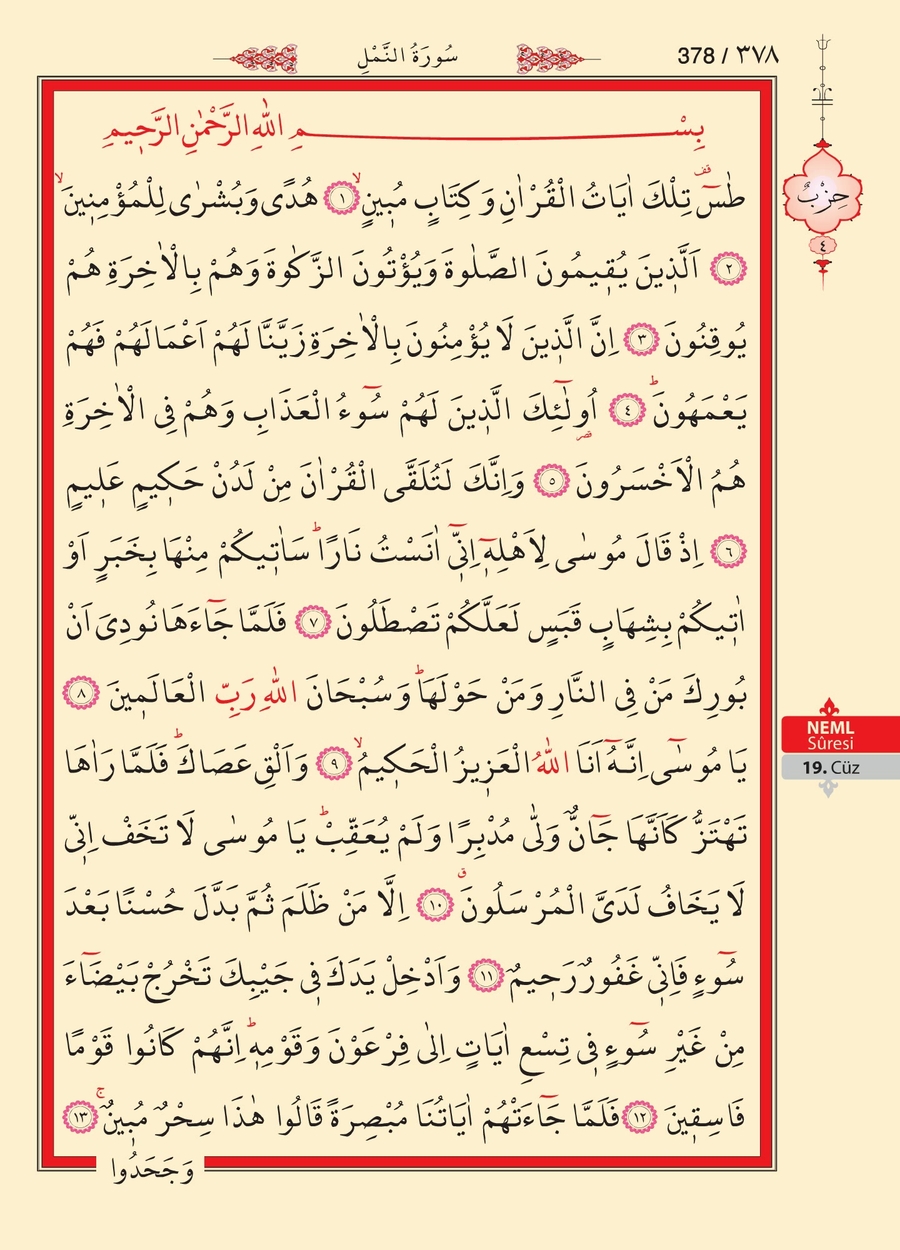 سُورَةُ النَّمْلِ
378 / ٣٧٨
بِسْمِ اللّٰهِ الرَّحْمٰنِ الرَّح۪يمِ
طٰسٓ۠ تِلْكَ اٰيَاتُ الْقُرْاٰنِ وَكِتَابٍ مُب۪ينٍۙ ﴿١﴾ هُدًى وَبُشْرٰى لِلْمُؤْمِن۪ينَۙ
﴿٢﴾ اَلَّذ۪ينَ يُق۪يمُونَ الصَّلٰوةَ وَيُؤْتُونَ الزَّكٰوةَ وَهُمْ بِالْاٰخِرَةِ هُمْ
يُوقِنُونَ ﴿٣﴾ اِنَّ الَّذ۪ينَ لَا يُؤْمِنُونَ بِالْاٰخِرَةِ زَيَّنَّا لَهُمْ اَعْمَالَهُمْ فَهُمْ
يَعْمَهُونَۜ ﴿٤﴾ اُو۬لٰٓئِكَ الَّذ۪ينَ لَهُمْ سُٓوءُ الْعَذَابِ وَهُمْ فِي الْاٰخِرَةِ
هُمُ الْاَخْسَرُونَ ﴿٥﴾ وَاِنَّكَ لَتُلَقَّى الْقُرْاٰنَ مِنْ لَدُنْ حَك۪يمٍ عَل۪يمٍ
﴿٦﴾ اِذْ قَالَ مُوسٰى لِاَهْلِه۪ٓ اِنّ۪ٓي اٰنَسْتُ نَارًاۜ سَاٰت۪يكُمْ مِنْهَا بِخَبَرٍ اَوْ
اٰت۪يكُمْ بِشِهَابٍ قَبَسٍ لَعَلَّكُمْ تَصْطَلُونَ ﴿٧﴾ فَلَمَّا جَٓاءَهَا نُودِيَ اَنْ
بُورِكَ مَنْ فِي النَّارِ وَمَنْ حَوْلَهَاۜ وَسُبْحَانَ اللّٰهِ رَبِّ الْعَالَم۪ينَ ﴿٨﴾
يَا مُوسٰٓى اِنَّهُٓ اَنَا اللّٰهُ الْعَز۪يزُ الْحَك۪يمُۙ ﴿٩﴾ وَاَلْقِ عَصَاكَۜ فَلَمَّا رَاٰهَا
تَهْتَزُّ كَاَنَّهَا جَٓانٌّ وَلّٰى مُدْبِرًا وَلَمْ يُعَقِّبْۜ يَا مُوسٰى لَا تَخَفْ اِنّ۪ي
لَا يَخَافُ لَدَيَّ الْمُرْسَلُونَۗ ﴿١٠﴾ اِلَّا مَنْ ظَلَمَ ثُمَّ بَدَّلَ حُسْنًا بَعْدَ
سُٓوءٍ فَاِنّ۪ي غَفُورٌ رَح۪يمٌ ﴿١١﴾ وَاَدْخِلْ يَدَكَ ف۪ي جَيْبِكَ تَخْرُجْ بَيْضَٓاءَ
مِنْ غَيْرِ سُٓوءٍ ف۪ي تِسْعِ اٰيَاتٍ اِلٰى فِرْعَوْنَ وَقَوْمِه۪ۜ اِنَّهُمْ كَانُوا قَوْمًا
فَاسِق۪ينَ ﴿١٢﴾ فَلَمَّا جَٓاءَتْهُمْ اٰيَاتُنَا مُبْصِرَةً قَالُوا هٰذَا سِحْرٌ مُب۪ينٌۚ ﴿١٣﴾
وَجَحَدُوا
حِزْبٌ
٤
NEML
Sûresi
19. Cüz